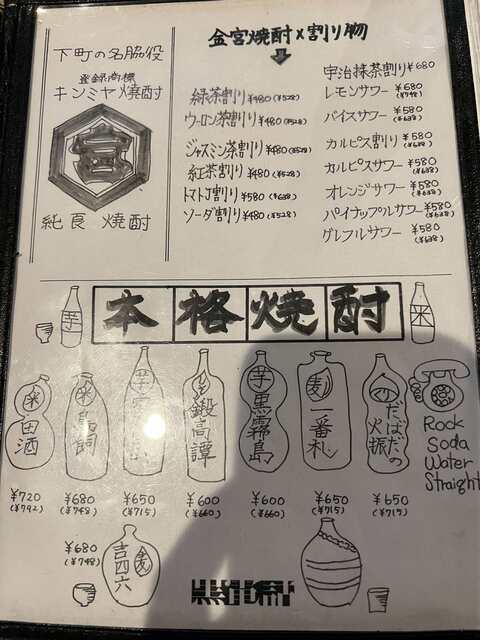 下町の名脇役
登録商標
キンミヤ焼酎
宮
純良 焼酎
金宮焼酎×割り物
緑茶割り¥480(¥528)
ウーロン茶割り¥480(¥528)
ジャスミン茶割り¥480(¥528)
紅茶割り¥480(¥528)
トマトJ割り¥580(¥638)
ソーダ割り¥480(¥528)
宇治抹茶割り¥680
(¥748)
レモンサワー ¥680
バイスサワー ¥580
(¥638)
カルピス割り¥580
(¥638)
カルピスサワー ¥580
(¥638)
オレンジサワー ¥580
(¥638)
パイナップルサワー¥580
(¥638)
グレフルサワー ¥580
(¥638)
芋
本格焼酎
米
米
田酒
¥720
(¥792)
米
鳥飼
¥680
(¥748)
芋
¥650
(¥715)
鍛高譚
¥600
(¥660)
芋
黒霧島
¥600
(¥660)
麦
一番札
¥650
(¥715)
だばだの
火振
¥650
(¥715)
Rock
Soda
Water
Straight
¥680
(¥748)
麦
吉四六